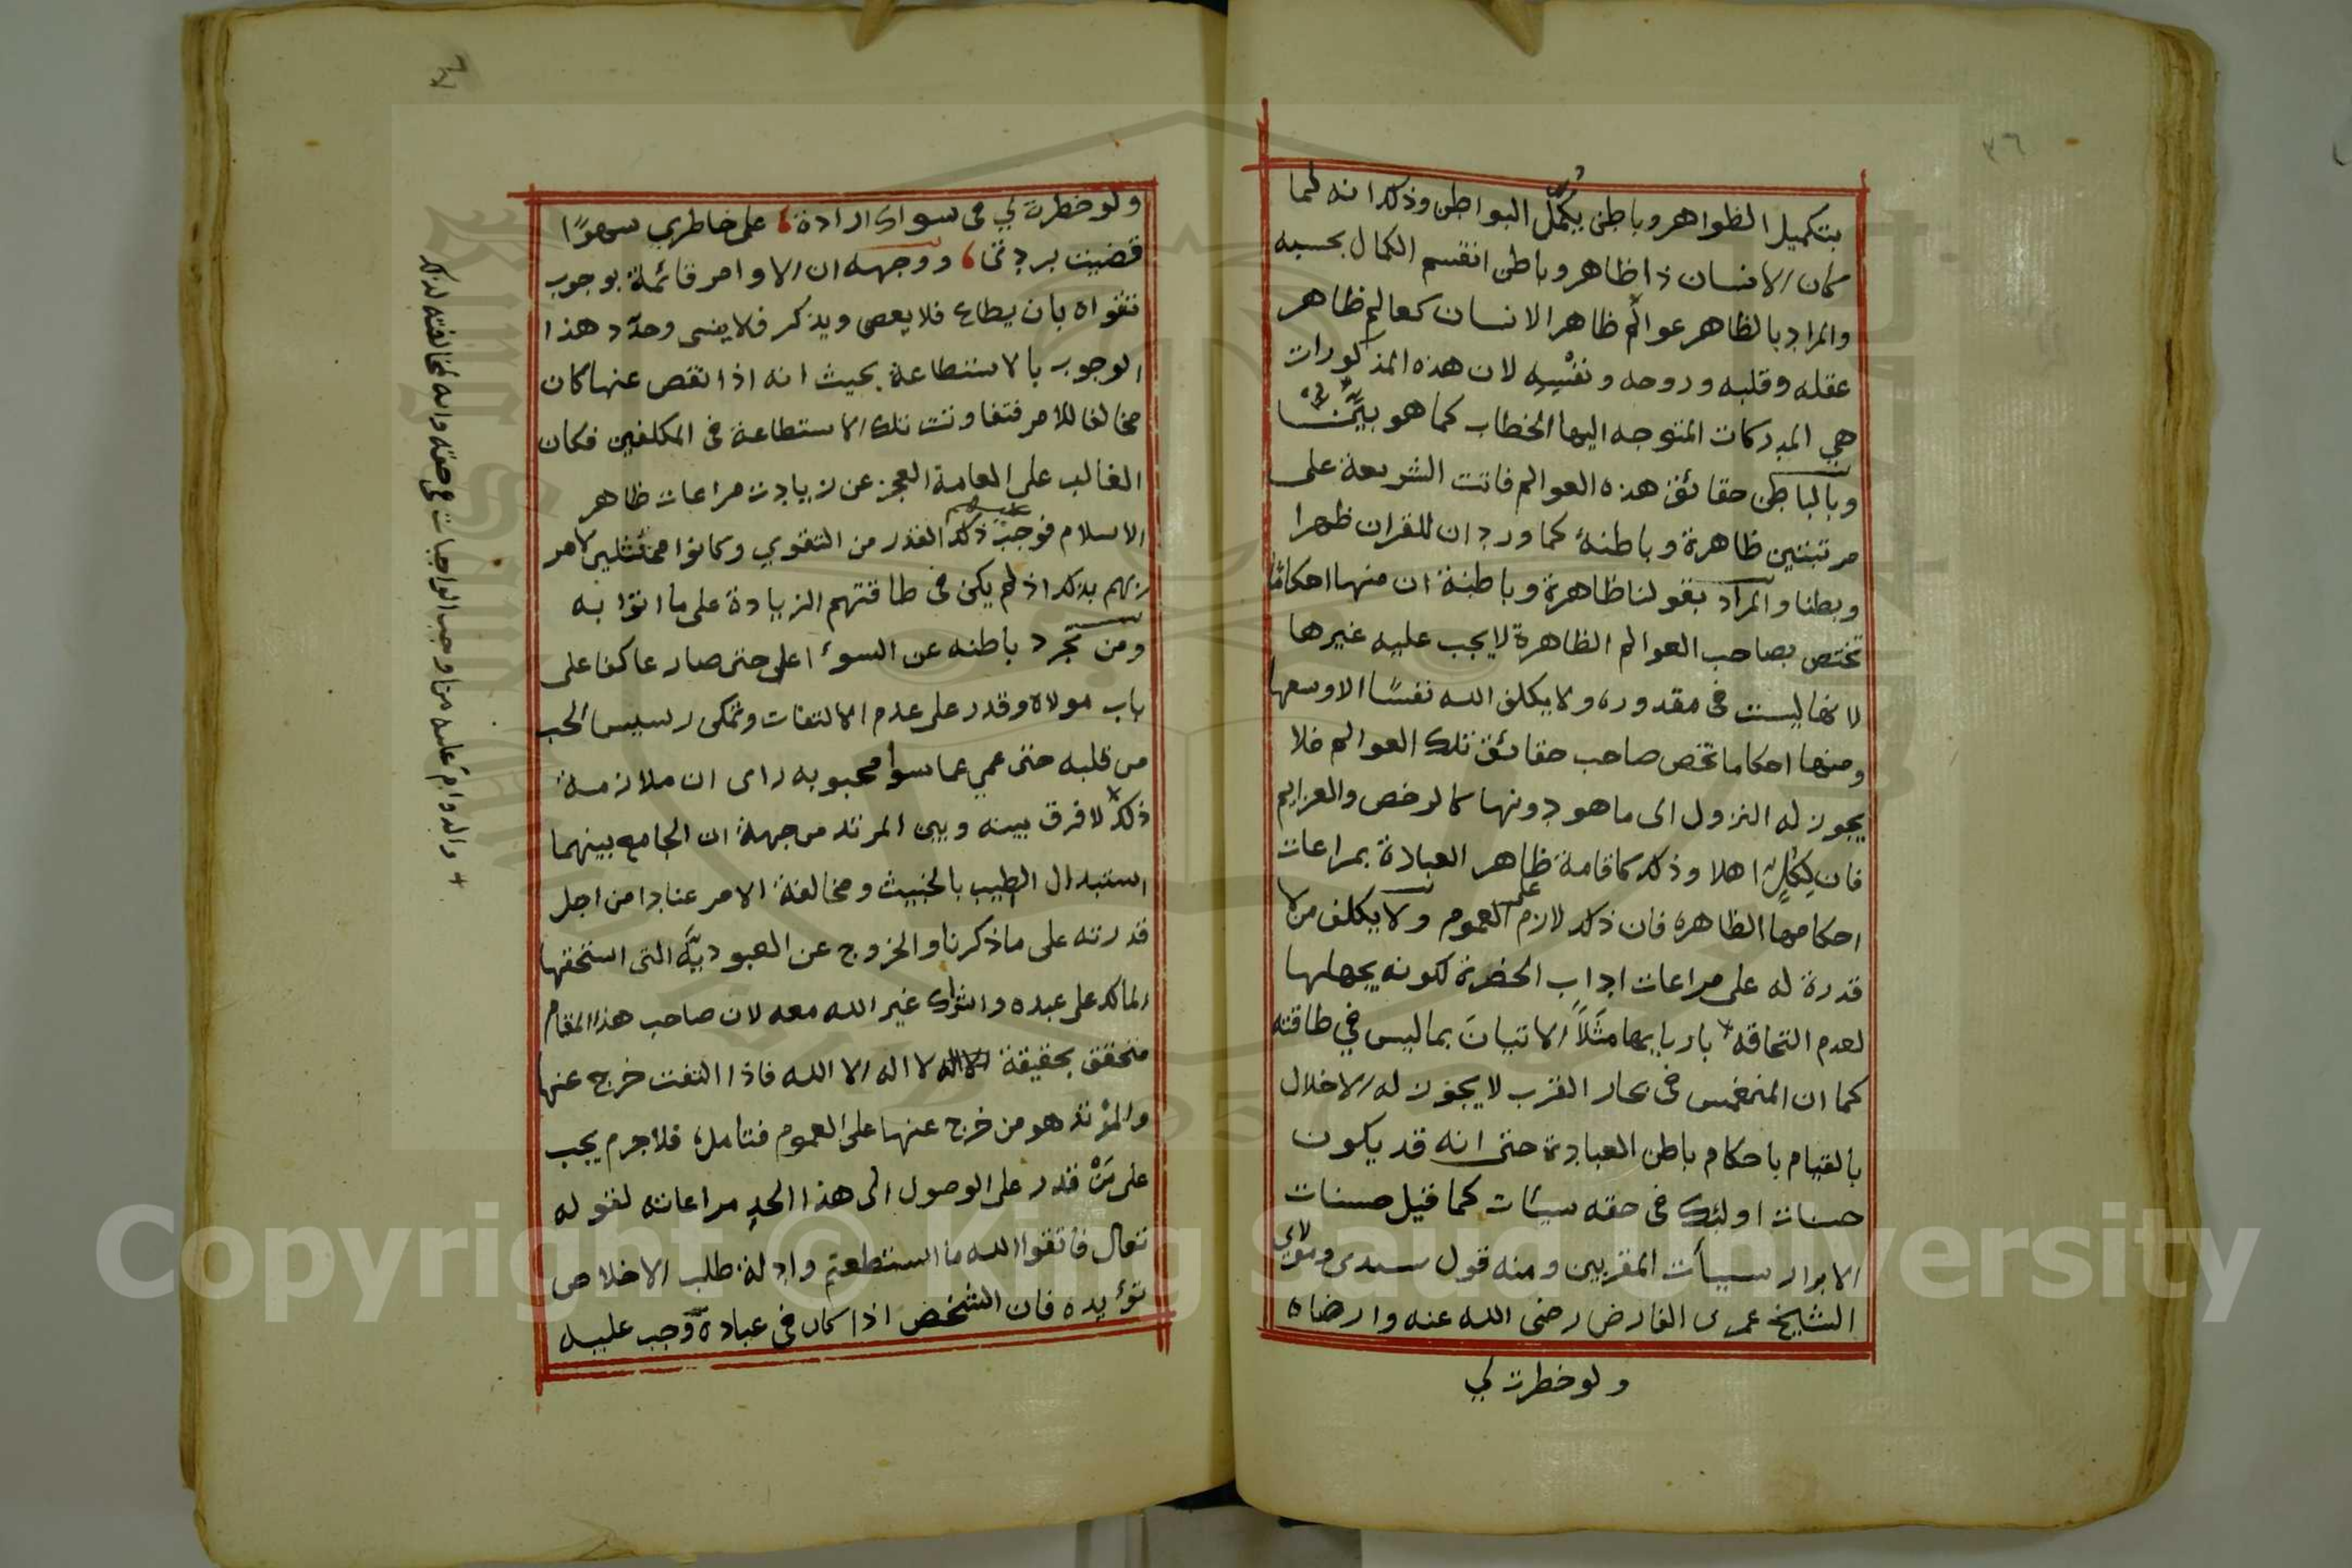 ٣٦
بتكميل الظواهر وباطن بكمل البواطن وذلك انه لما
كان الانسان ذا ظاهر وباطن انقسم الكمال بحسبه
والمراد بالظاهر عوالم ظاهر الانسان كعالم ظاهر
عقله وقلبه وروحه ونفسه لان هذه المذكورات
هي المدركات المتوجه اليها الخطاب كما هو بين
وبالباطن حقائق هذه العوالم فاتت الشريعة على
مرتبتين ظاهرة وباطنة كما ورد ان للقران ظهرا
وبطنا والمراد بقولنا ظاهرة وباطنة ان منها احكاما
تختص بصاحب العوالم الظاهرة لا يجب عليه غيرها
لانها ليست في مقدوره ولا يكلف الله نفسًا الا وسعها
ومنها احكاما تخص صاحب حقائق تلك العوالم فلا
يجوز له النزول الى ما هو دونها كالرخص والعزايم
فان لِكلٍ اهلا وذلك كاقامة ظاهر العبادة بمراعات
احكامها الظاهرة فان ذلك لازم على العموم ولا يكلف من لا
قدرة له على مراعات اداب الحضرة لكونه يجهلها
لعدم التحاقه باربابها مثلاً الاتيان بما ليس في طاقته
كما ان المنغمس في بحار القرب لا يجوز له الاخلال
بالقيام باحكام باطن العبادة حتى انه قد يكون
حسنات اولئك في حقه سيئات كما قيل حسنات
الابرار سيأت المقربين ومنه قول سيدى ومولاي
الشيخ عمر بن الفارض رضى الله عنه وارضاه
ولو خطرت لي
ولو خطرت لي في سواك ارادة، على خاطري سهوًا
قضيت بردتى، ووجهه ان الاوامر قائمة بوجوب
تقواه بان يطاع فلا يعصى ويذكر فلا ينسى وحدد هذا
الوجوب بالاستطاعة بحيث انه اذا نقص عنها كان
مخالفا للامر فتفاوتت تلك الاستطاعة في المكلفين فكان
الغالب على العامة العجز عن زيادت مراعات ظاهر
الاسلام فوجب عليهم ذلك القدر من التقوي وكانوا ممتثلين لامر
ربهم بذلك اذ لم يكن في طاقتهم الزيادة على ما اتوا به
ومن تجرد باطنه عن السوء اعلى حتى صار عاكفا على
باب مولاه وقدر على عدم الالتفات وتمكن رسيس الحب
من قلبه حتى عمي عما سوا محبوبه راى ان ملازمة
ذلك لا فرق بينه وبين المرتد من جهة ان الجامع بينهما
استبدال الطيب بالخبيث ومخالفة الامر عنادا من اجل
قدرته على ما ذكرنا والخروج عن العبودية التى استحقها
المالك على عبده واشراك غير الله معه لان صاحب هذا المقام
متحقق بحقيقة لا اله الا الله فاذا التفت خرج عنها
والمرتد هو من خرج عنها على العموم فتأمل، فلا جرم يجب
على من قدر على الوصول الى هذا الحد مراعاته لقوله
تعالى فاتقوا الله ما استطعتم وادلة طلب الاخلاص
تؤيده فان الشخص اذا كان في عبادة وجب عليه